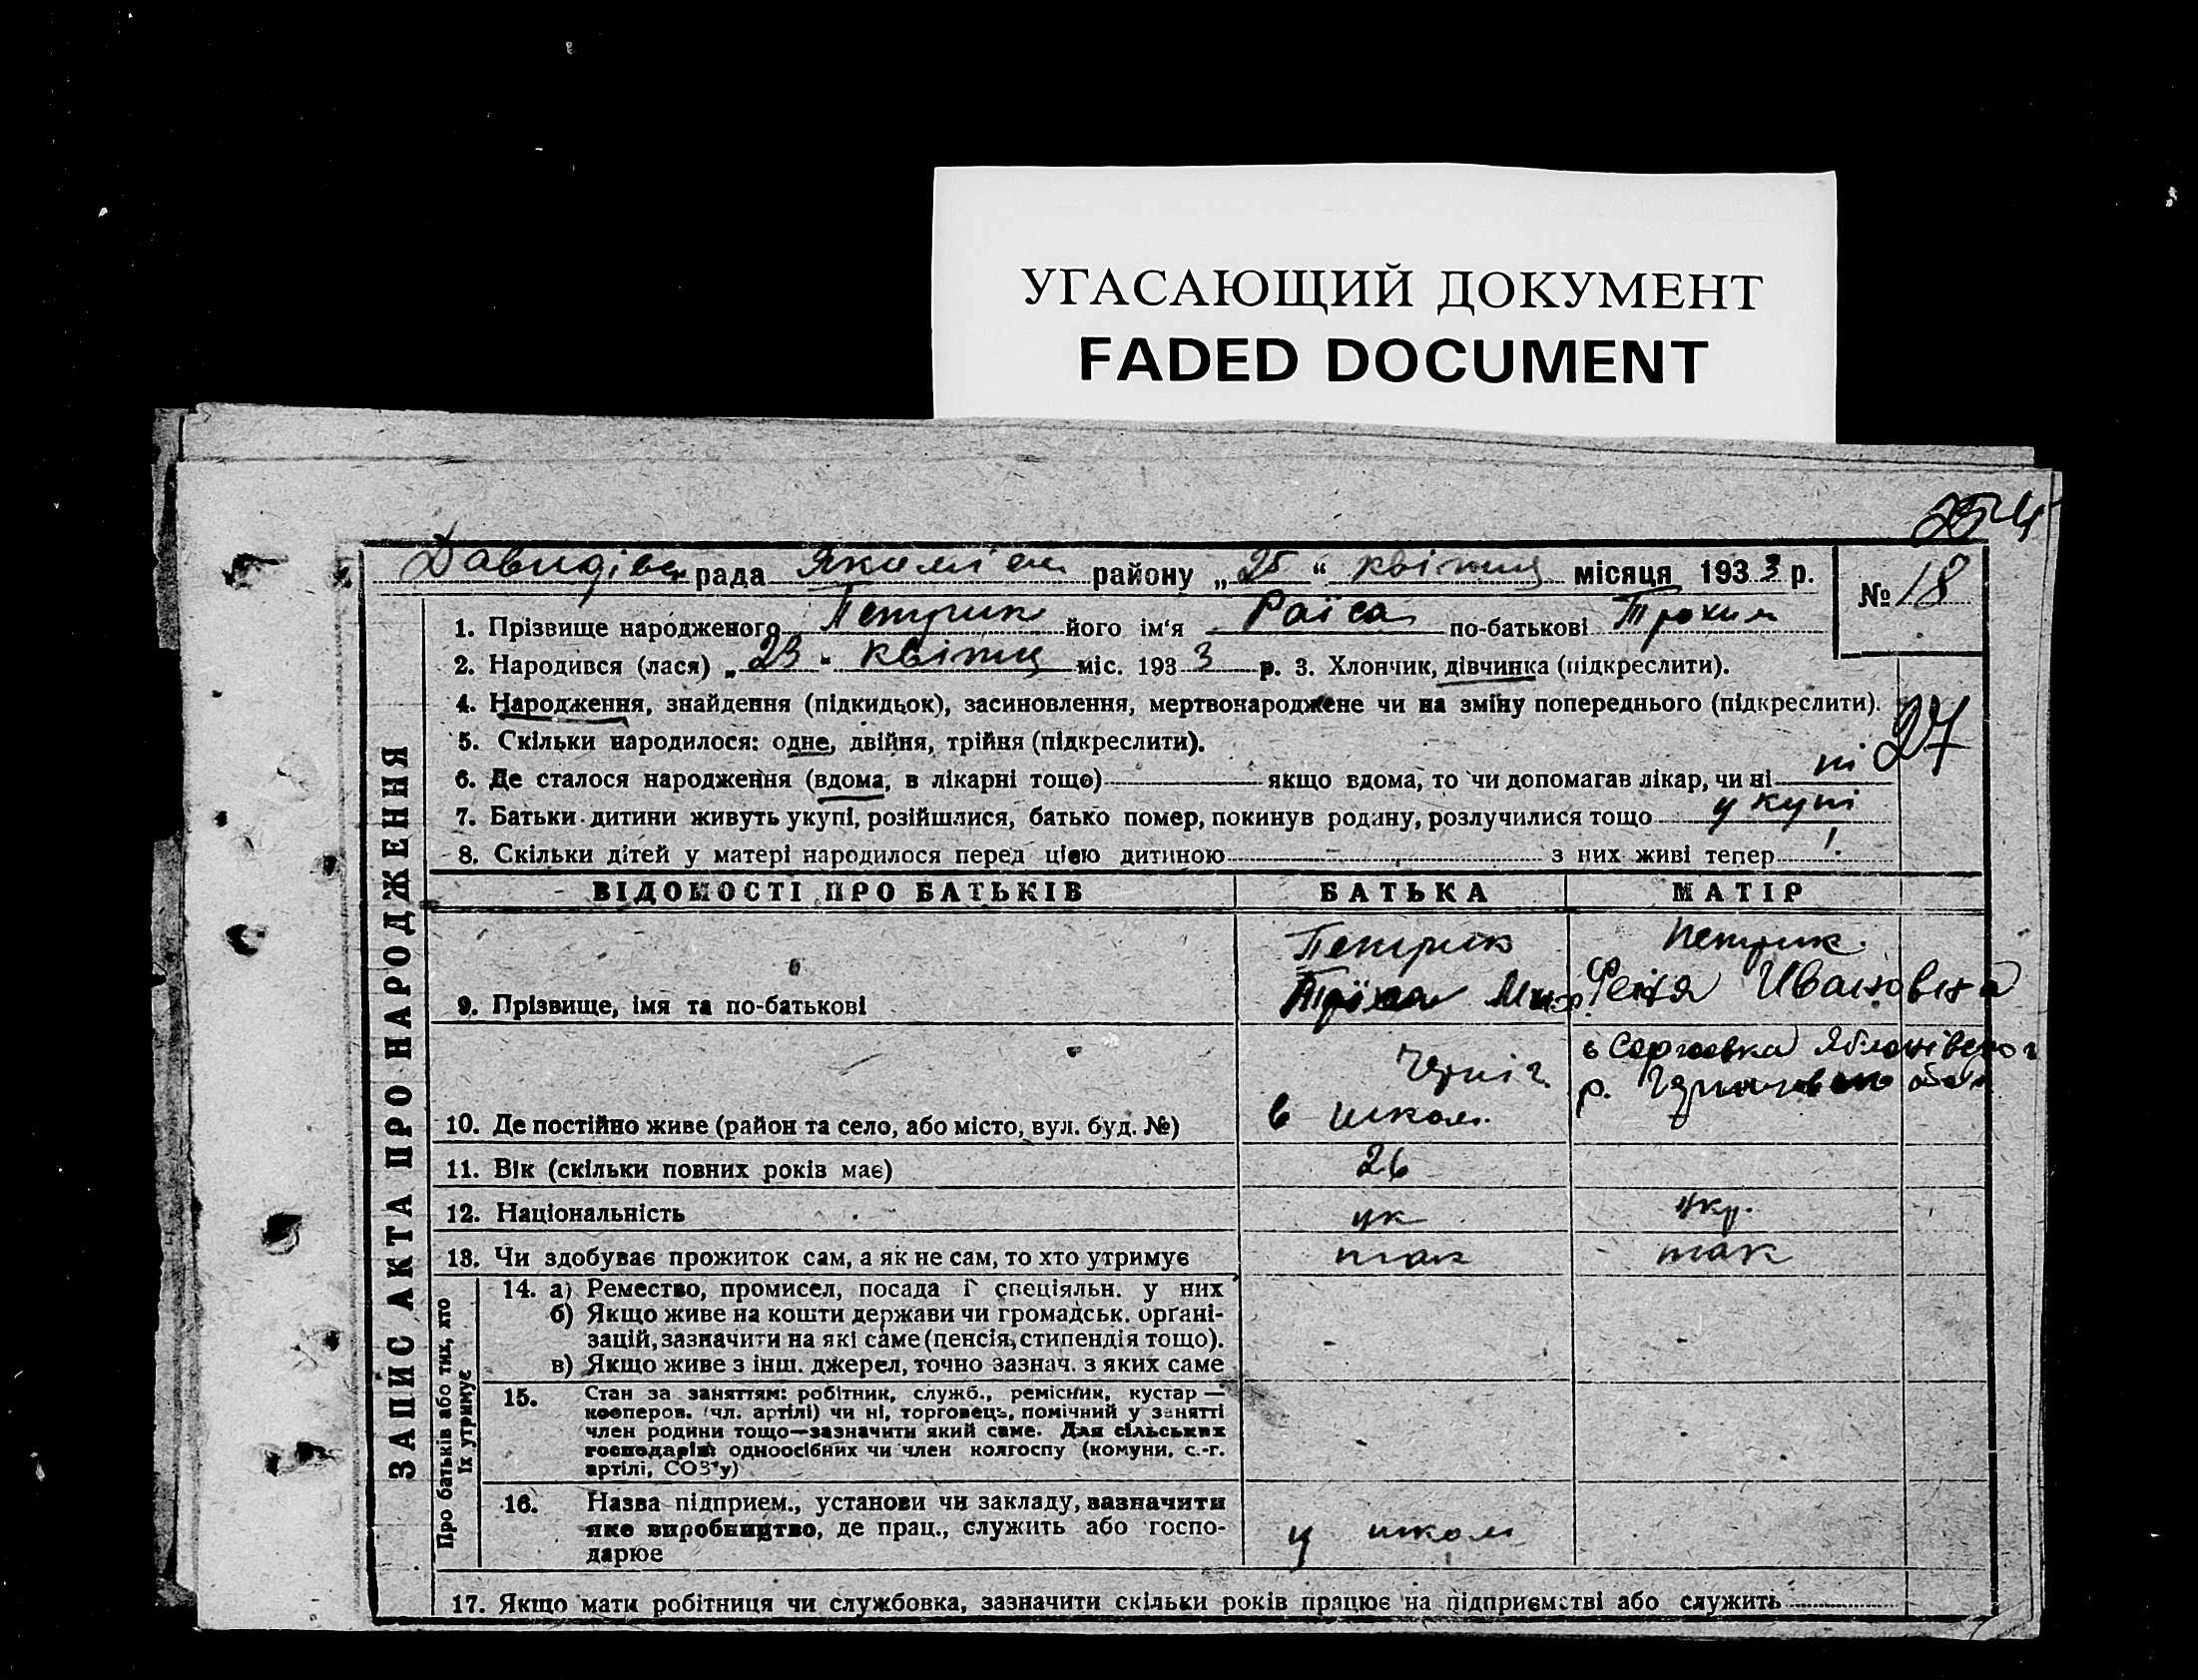 УГАСАЮЩИЙ ДОКУМЕНТ
FADED DOCUMENT
254
Давидівс рада Якимівс району „25“ квітня місяця 1933 р.
№ 18
1. Прізвище народженого Петрик його ім'я Раїса по-батькові Трохим
2. Народився (лася) „23“ квітня міс. 1933 р. 3. Хлончик, дівчинка (підкреслити).
4. Народження, знайдення (підкидьок), засиновлення, мертвонароджене чи на зміну попереднього (підкреслити).
27
5. Скільки народилося: одне, двійня, трійня (підкреслити).
6. Де сталося народження (вдома, в лікарні тощо) якщо вдома, то чи допомагав лікар, чи ні ні
7. Батьки дитини живуть укупі, розійшлися, батько помер, покинув родину, розлучилися тощо у купі
8. Скільки дітей у матері народилося перед цією дитиною - з них живі тепер
ЗАПИС АКТА ПРО НАРОДЖЕННЯ
ВІДОМОСТІ ПРО БАТЬКІВ БАТЬКА МАТІР
Петрик Петрик
9. Прізвище, імя та по-батькові Феня Ивановна
Черніг.
р. обл
10. Де постійно живе (район та село, або місто, вул. буд. №) в школ.
11. Вік (скільки повних років має) 26
12. Національність ук укр.
13. Чи здобуває прожиток сам, а як не сам, то хто утримує так - так
Про батьків або тих, хто їх утримує
14. а) Ремество, промисел, посада і спеціяльн. у них
б) Якщо живе на кошти держави чи громадськ. орґані-
зацій, зазначити на які саме (пенсія, стипендія тощо). - -
в) Якщо живе з інш. джерел, точно зазнач. з яких саме
15. Стан за заняттям: робітник, служб., ремісник, кустар —
кооперов. (чл. артілі) чи ні, торговець, помічний у занятті
член родини тощо—зазначити який саме. Для сільських
господарів одноосібних чи член колгоспу (комуни, с.-г.
артілі, СОЗ'у)
16. Назва підприєм., установи чи закладу, зазначити
яке виробництво, де прац., служить або госпо-
дарює у школ
17. Якщо мати робітниця чи службовка, зазначити скільки років працює на підприємстві або служить